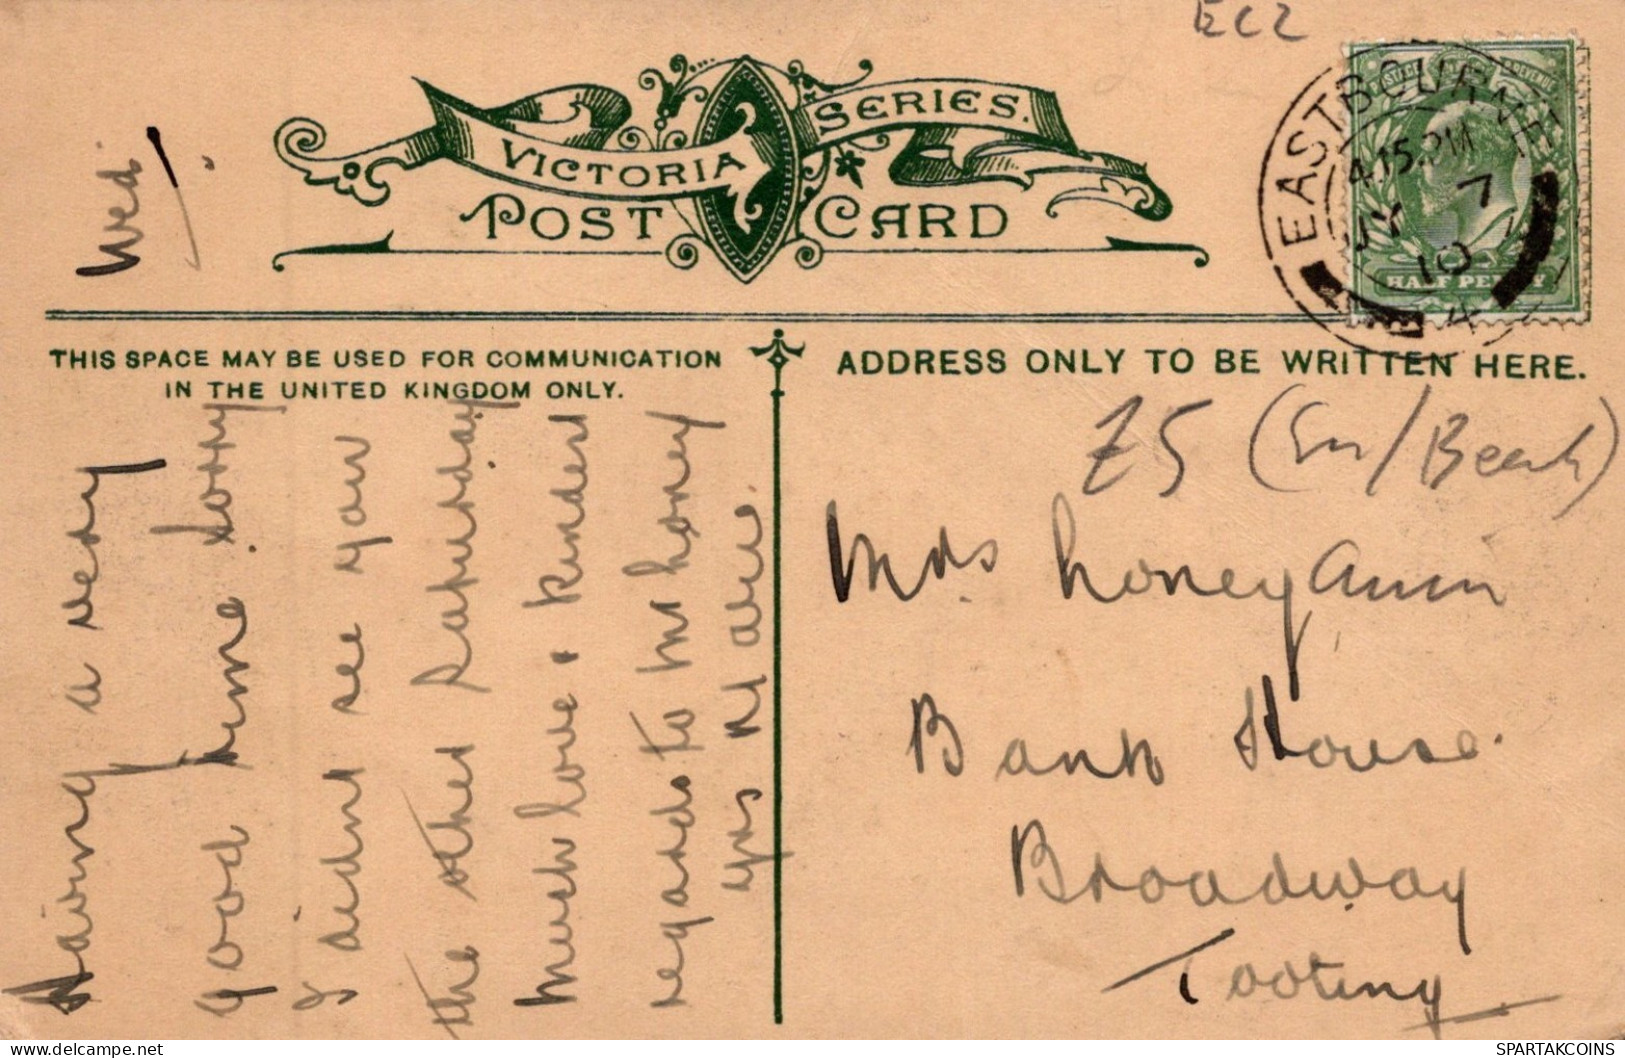 EC2
VICTORIA SERIES.
POST CARD
EASTBOURNE
4.15.PM
JY 7
10
4
HALF PENNY
THIS SPACE MAY BE USED FOR COMMUNICATION
IN THE UNITED KINGDOM ONLY.
ADDRESS ONLY TO BE WRITTEN HERE.
Wed.
Having a very
good time. sorry
I didnt see you
the other Saturday
much love & kindest
regards to Mr honey
yrs
£5 (Sx/Beach)
Mrs. honey
Bank House.
Broadway
Tooting
SPARTAKCOINS